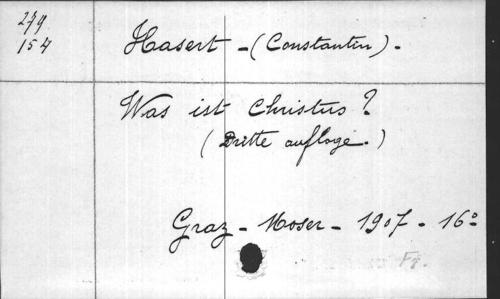 279
154
Hasert - (Constantin) -
Was ist Christus ?
(Dritte auflage.)
Graz - Moser - 1907 - 16º